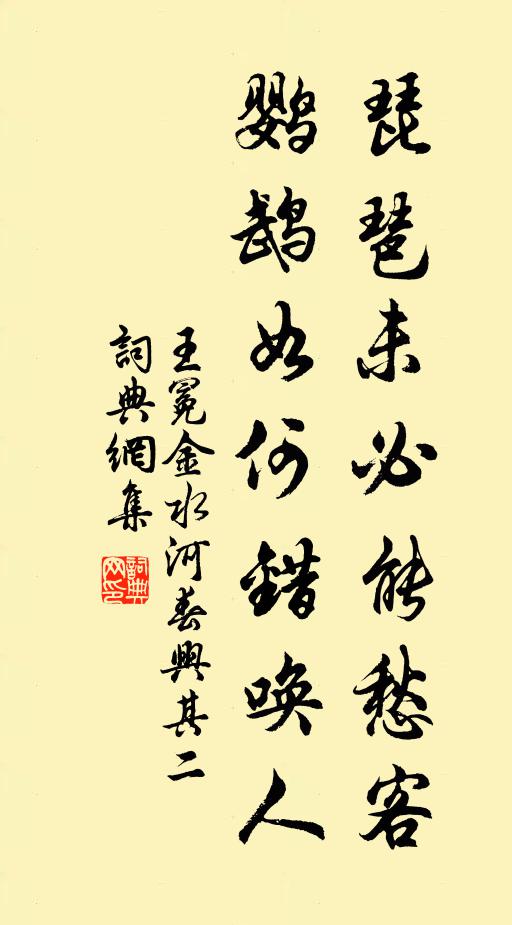 琵琶未必能愁客
鹦鹉如何錯唤人
王冕金水河春興其二
詞典網集
詞典網印